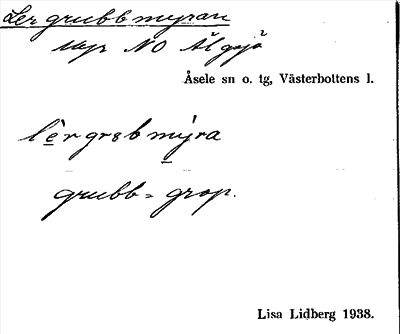 Lergrubbmyran
myr NO Älgsjö
Åsele sn o. tg, Västerbottens l.
lèrgrȣbmýra
grubb = grop.
Lisa Lidberg 1938.